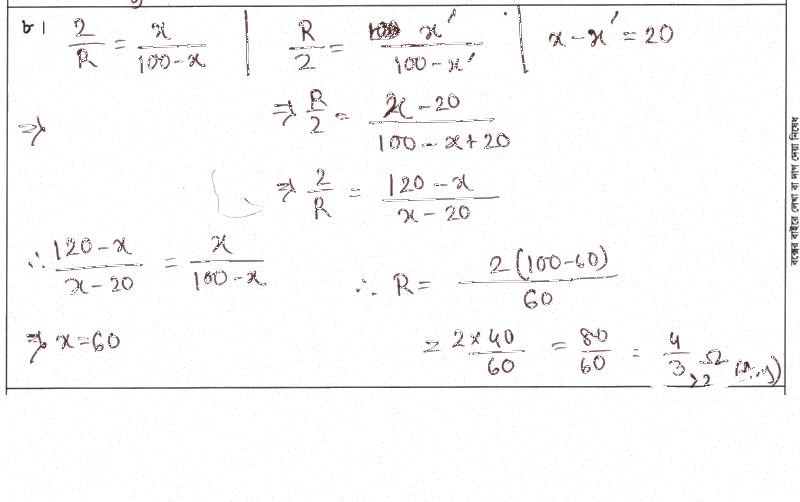 ৮। 2/R = x/(100-x) | R/2 = x'/(100-x') | x - x' = 20
⇒ ⇒ R/2 = (x-20)/(100-x+20)
⇒ 2/R = (120-x)/(x-20)
∴ (120-x)/(x-20) = x/(100-x) ∴ R = 2(100-60)/60
⇒ x = 60 = 2×40/60 = 80/60 = 4/3 Ω
বক্সের বাইরে লেখা বা দাগ দেয়া নিষেধ